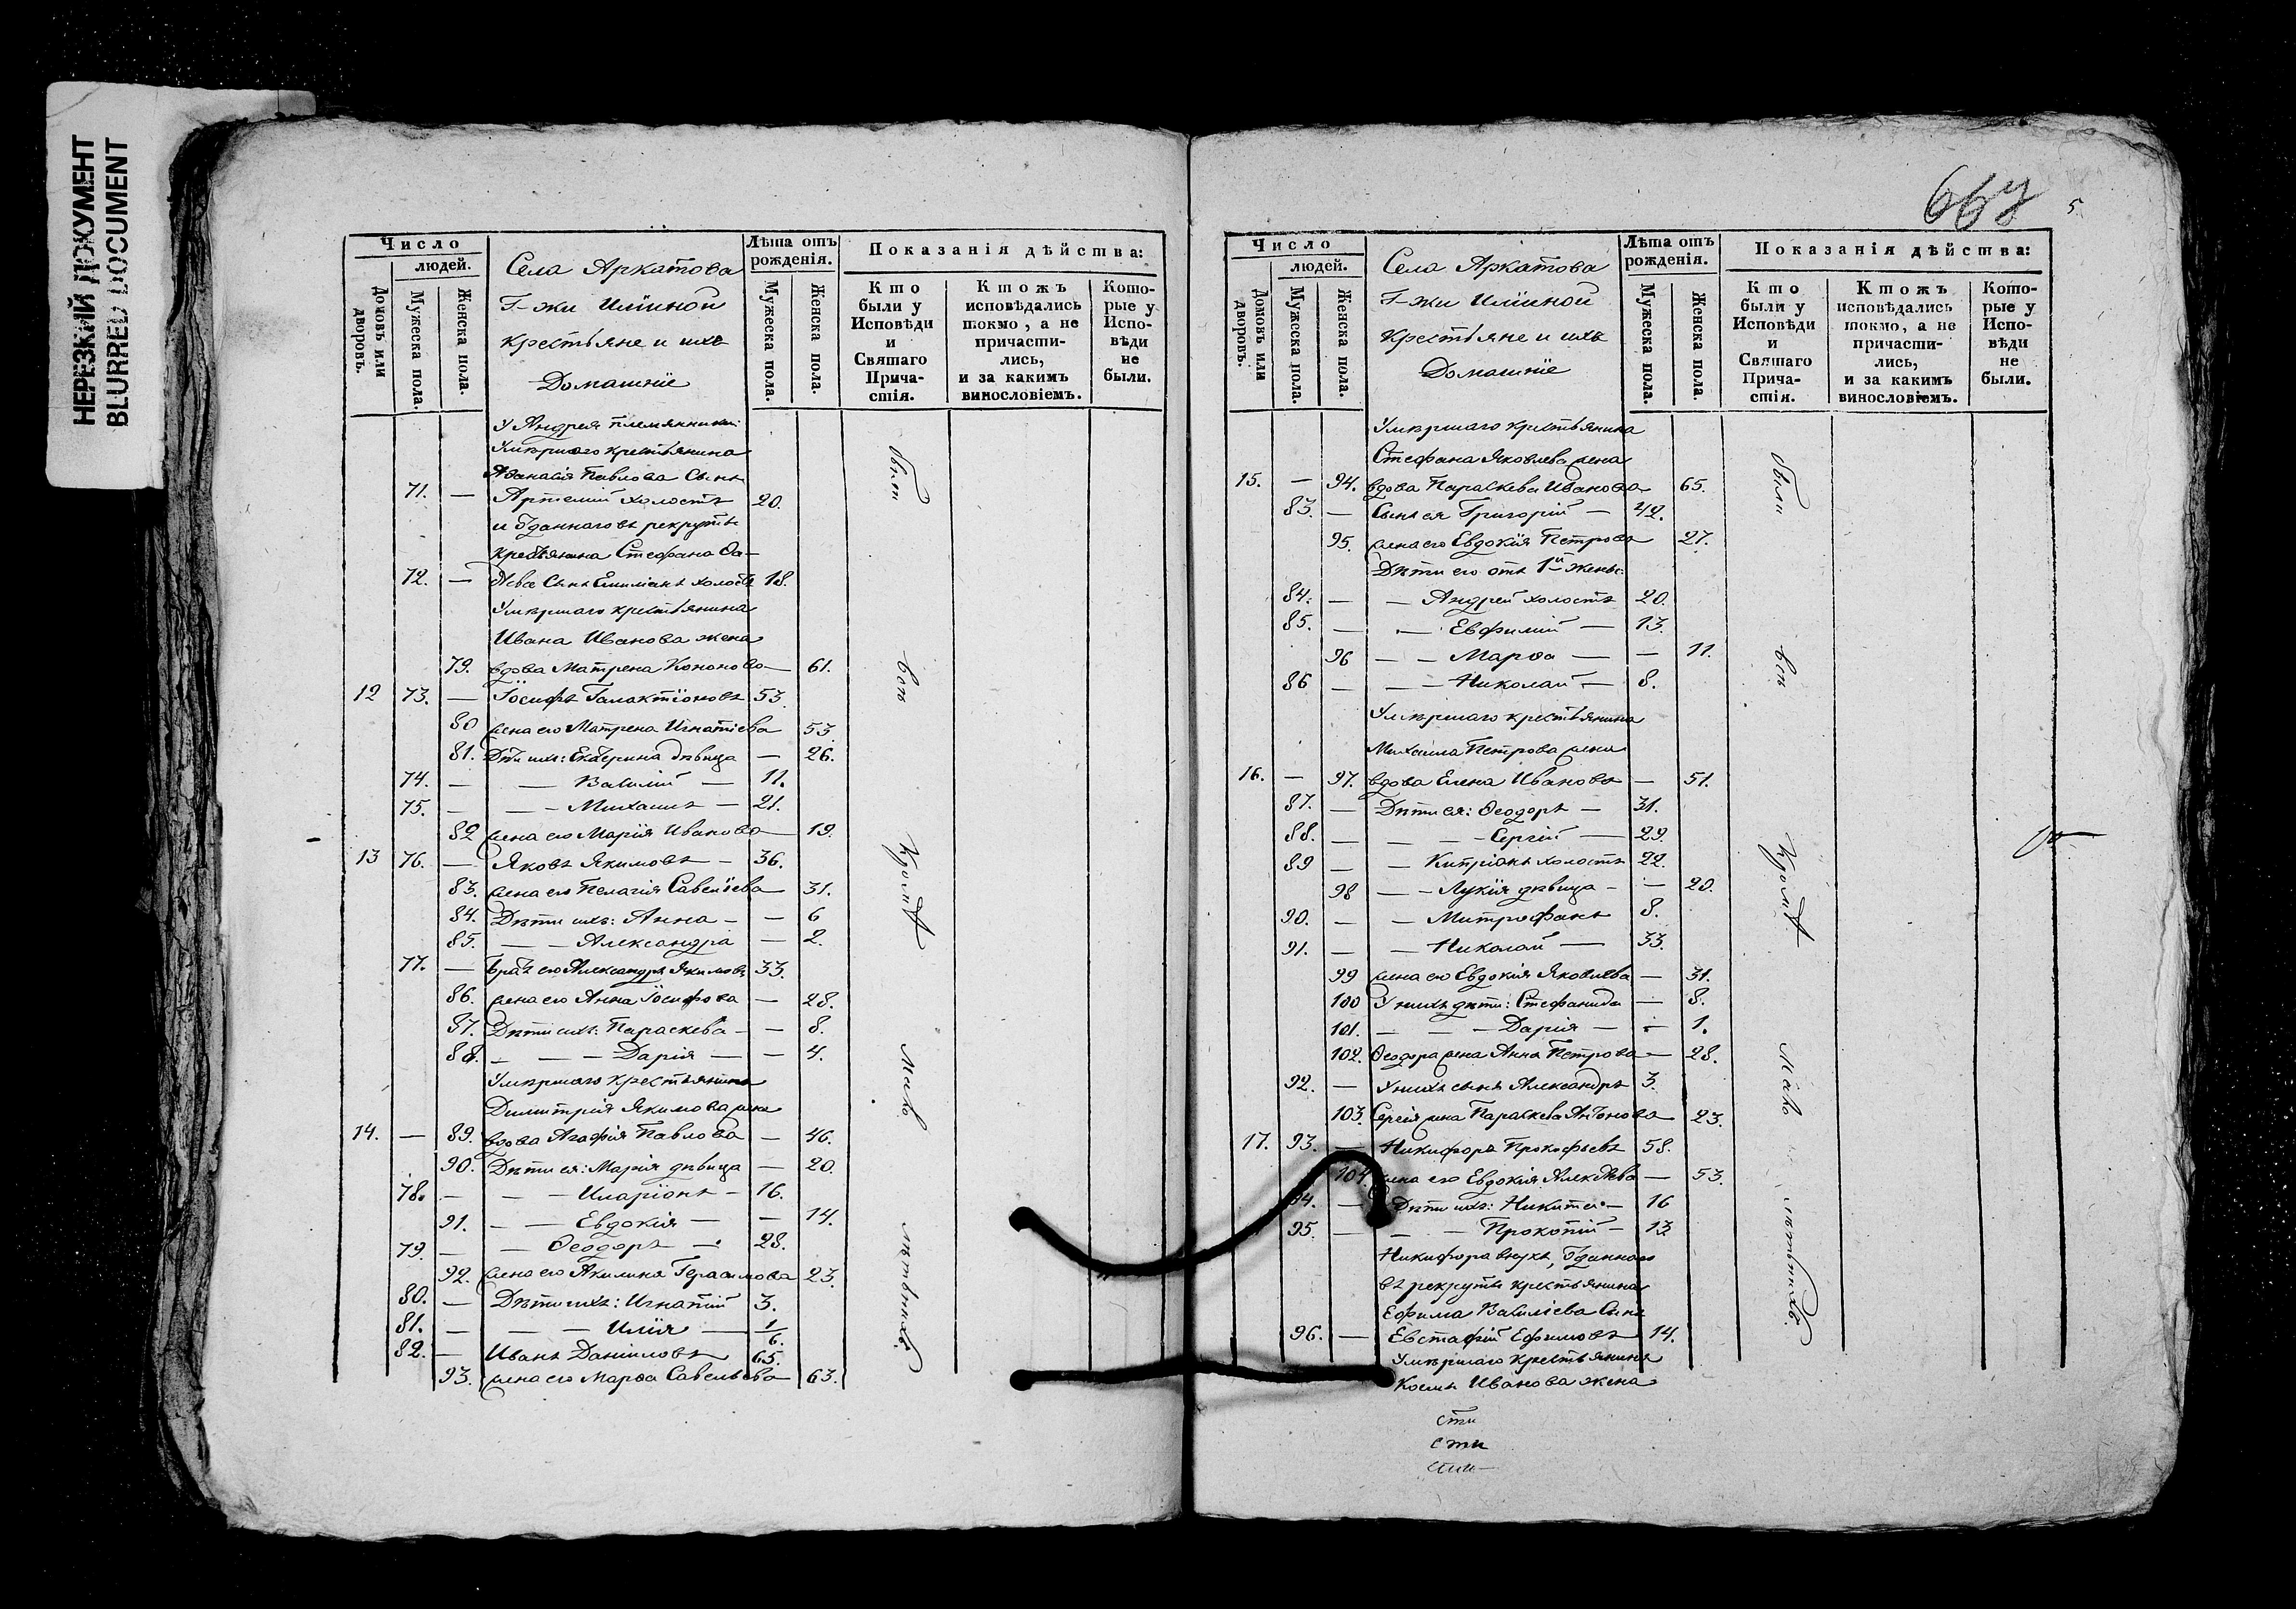 НЕРЕЗКИЙ ДОКУМЕНТ
BLURRED DOCUMENT
Число
людей.
Домовъ или дворовъ.
Мужеска пола.
Женска пола.
Села Аркатова
Г-жи Илїиной
крестьяне и ихъ
Домашнїе
Лѣта отъ рожденія.
Мужеска пола.
Женска пола.
Показанія дѣйства:
Кто были у Исповѣди и Святаго Прича-стія.
Ктожъ исповѣдались токмо, а не причасти-лись, и за какимъ винословіемъ.
Кото-рые у Испо-вѣди не были.
У Андрея племянники:
Умершаго крестьянина
Аѳанасія Павлова Сынъ
71. — Артемій холостъ 20.
и ѿданнаго въ рекруты
крестьянина Стефана Ѳа-
72. — дѣева Сынъ Емиліанъ холостъ 18.
Умершаго крестьянина
Ивана Иванова жена
79. вдова Матрена Кононова — 61.
12 73. — Їосифъ Галактїоновъ 53.
80 жена его Матрена Игнатїева 53.
81. Дѣти ихъ: Екатерина дѣвица — 26.
74. — — Василій — 11.
75. — — — Михаилъ — 21.
82 жена его Марїя Иванова — 19.
13 76. — Яковъ Якимовъ — 36.
83. жена его Пелагія Савелїева — 31.
84. Дѣти ихъ: Анна — — 6
85. — — Александра — 2.
77. — братъ его Александръ Якимовъ 33.
86. жена его Анна Їосифова — 28.
87. Дѣти ихъ: Параскева — — 8.
88. — — — Дарія — — 4.
Умершаго крестьянина
Димитрія Якимова жена
14. — 89. вдова Агафія Павлова — 46.
90. Дѣти ея: Марія дѣвица — 20.
78. — — — Иларїонъ — 16.
91. — — Евдокія — — 14.
79. — — Ѳеодоръ — 28.
92. жена его Акилина Герасимова 23.
80. — Дѣти ихъ: Игнатій 3.
81. — — — Илїя — 1/6.
82. — Иванъ Даніиловъ 65.
93. жена его Марѳа Савельева 63.
были
вси
кромѣ
мало
лѣтныхъ.
667
5
Число
людей.
Домовъ или дворовъ.
Мужеска пола.
Женска пола.
Села Аркатова
Г-жи Илїиной
крестьяне и ихъ
Домашнїе
Лѣта отъ рожденія.
Мужеска пола.
Женска пола.
Показанія дѣйства:
Кто были у Исповѣди и Святаго Прича-стія.
Ктожъ исповѣдались токмо, а не причасти-лись, и за какимъ винословіемъ.
Кото-рые у Испо-вѣди не были.
Умершаго крестьянина
Стефана Яковлева жена
15. — 94. вдова Параскева Иванова 65.
83. — Сынъ ея Григорій — 42.
95. жена его Евдокїя Петрова 27.
Дѣти его отъ 1й жены:
84. — — Андрей холостъ 20.
85. — — Евфимій — 13.
96 — — Марѳа — — 11.
86 — — — Николай — 8.
Умершаго крестьянина
Михаила Петрова жена
16. — 97. вдова Елена Иванова — 51.
87. — Дѣти ея: Ѳеодоръ — 31.
88. — — — Сергій — 29.
89 — — Кипріанъ холостъ 22.
98 — — Лукїя дѣвица — — 20.
90. — — Митрофанъ 8.
91. — — Николай — 33.
99 жена его Евдокія Яковлева — 31.
100 У нихъ дѣти: Стефанида — 8.
101. — — — Дарія — — 1.
102. Ѳеодора жена Анна Петрова — 28.
92. — У нихъ сынъ Александръ 3.
103. Сергія жена Параскева Антонова 23.
17. 93. — Никифоръ Прокофьевъ 58.
104. жена его Евдокія Алексѣева — 53.
94. — Дѣти ихъ: Никита — 16
95. — — — Прокопій — 13
Никифора внукъ, ѿданнаго
въ рекруты крестьянина
Ефима Василїева Сынъ
96. — Евстафій Ефимовъ 14.
Умершаго крестьянина
Козмы Иванова жена
были
вси
кромѣ
мало
лѣтныхъ.
сти
сти